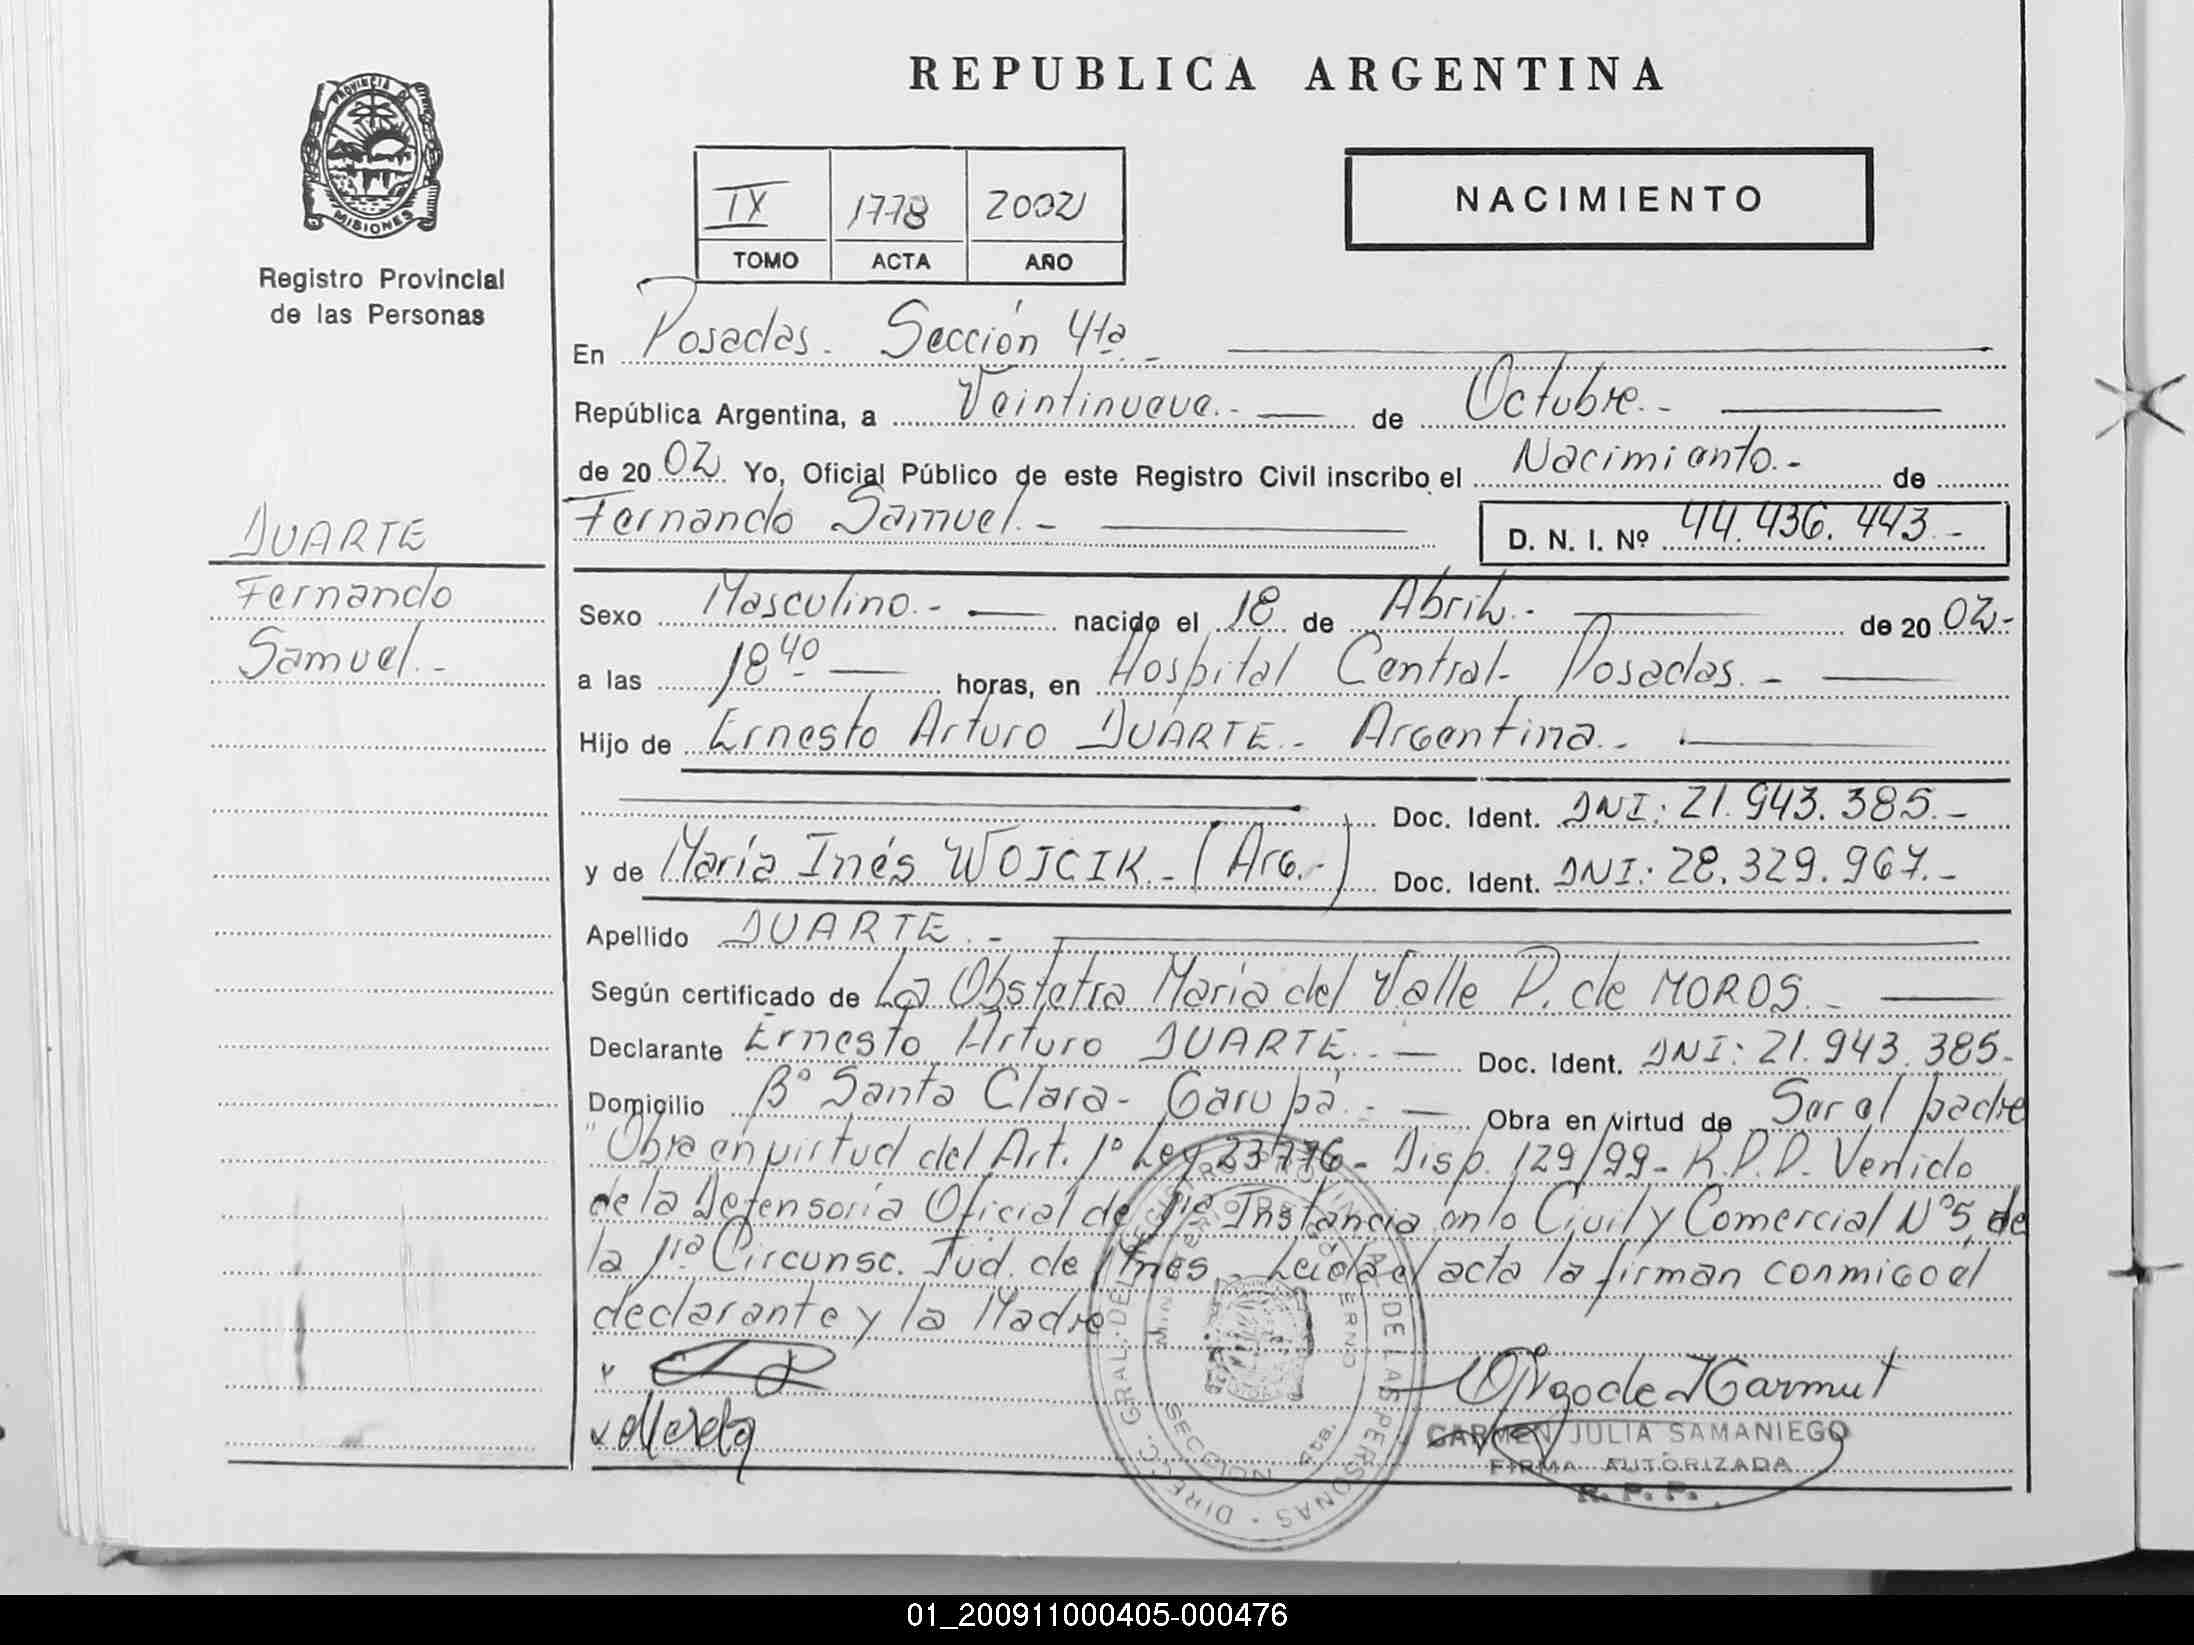 REPUBLICA ARGENTINA
PROVINCIA DE
MISIONES
Registro Provincial
de las Personas
IX 1778 2002
TOMO ACTA AÑO
NACIMIENTO
En Posadas. Sección 4ta.-
República Argentina, a Veintinueve.- de Octubre.-
de 20 02 Yo, Oficial Público de este Registro Civil inscribo el Nacimiento.- de
Fernando Samuel.- D. N. I. Nº 44.436.443.-
DUARTE
Fernando
Samuel.-
Sexo Masculino.- nacido el 18 de Abril.- de 20 02.-
a las 18 40 horas, en Hospital Central- Posadas.-
Hijo de Ernesto Arturo DUARTE.- Argentina.-
Doc. Ident. DNI: 21.943.385.-
y de María Inés WOJCIK.- (Arg.-) Doc. Ident. DNI: 28.329.967.-
Apellido DUARTE.-
Según certificado de La Obstetra María del Valle P. de MOROS.-
Declarante Ernesto Arturo DUARTE.- Doc. Ident. DNI: 21.943.385.-
Domicilio Bº Santa Clara- Garupá.- Obra en virtud de Ser el padre
"Obra en virtud del Art. 1º Ley 23776- Disp. 129/99- R.P.P. Venido
de la Defensoría Oficial de 1ra Instancia en lo Civil y Comercial Nº5, de
la 1ra Circunsc. Jud. de Mnes.- Leída el acta la firman conmigo el
declarante y la Madre
DIREC. GRAL. DEL REGISTRO PROVINCIAL DE LAS PERSONAS
MINISTERIO DE GOBIERNO
SECCION 4ta.
CARMEN JULIA SAMANIEGO
FIRMA AUTORIZADA
R. P. P.
01_200911000405-000476